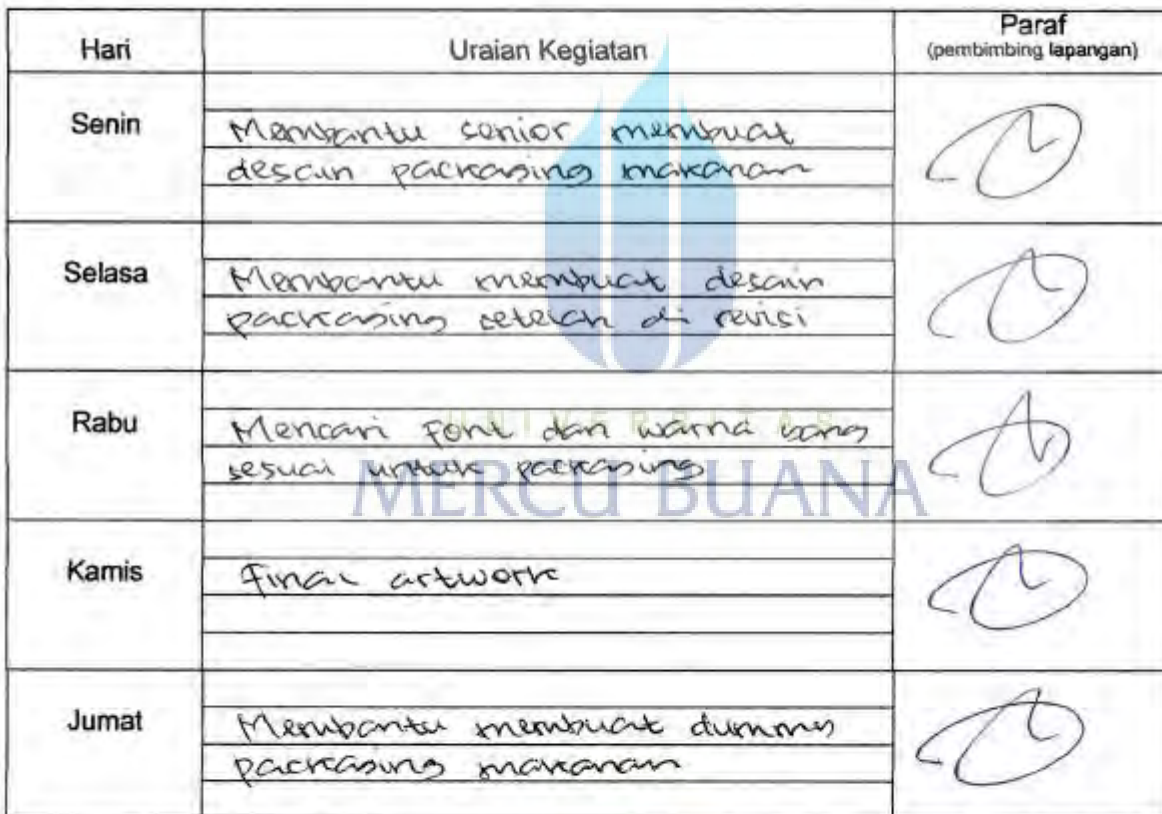 Hari Uraian Kegiatan Paraf
(pembimbing lapangan)
Senin
Membantu senior membuat
desain packaging makanan
Selasa
Membantu membuat desain
packaging setelah di revisi
Rabu
Mencari font dan warna yang
sesuai untuk packaging
UNIVERSITAS
MERCU BUANA
Kamis
Final artwork
Jumat
Membantu membuat dummy
packaging makanan